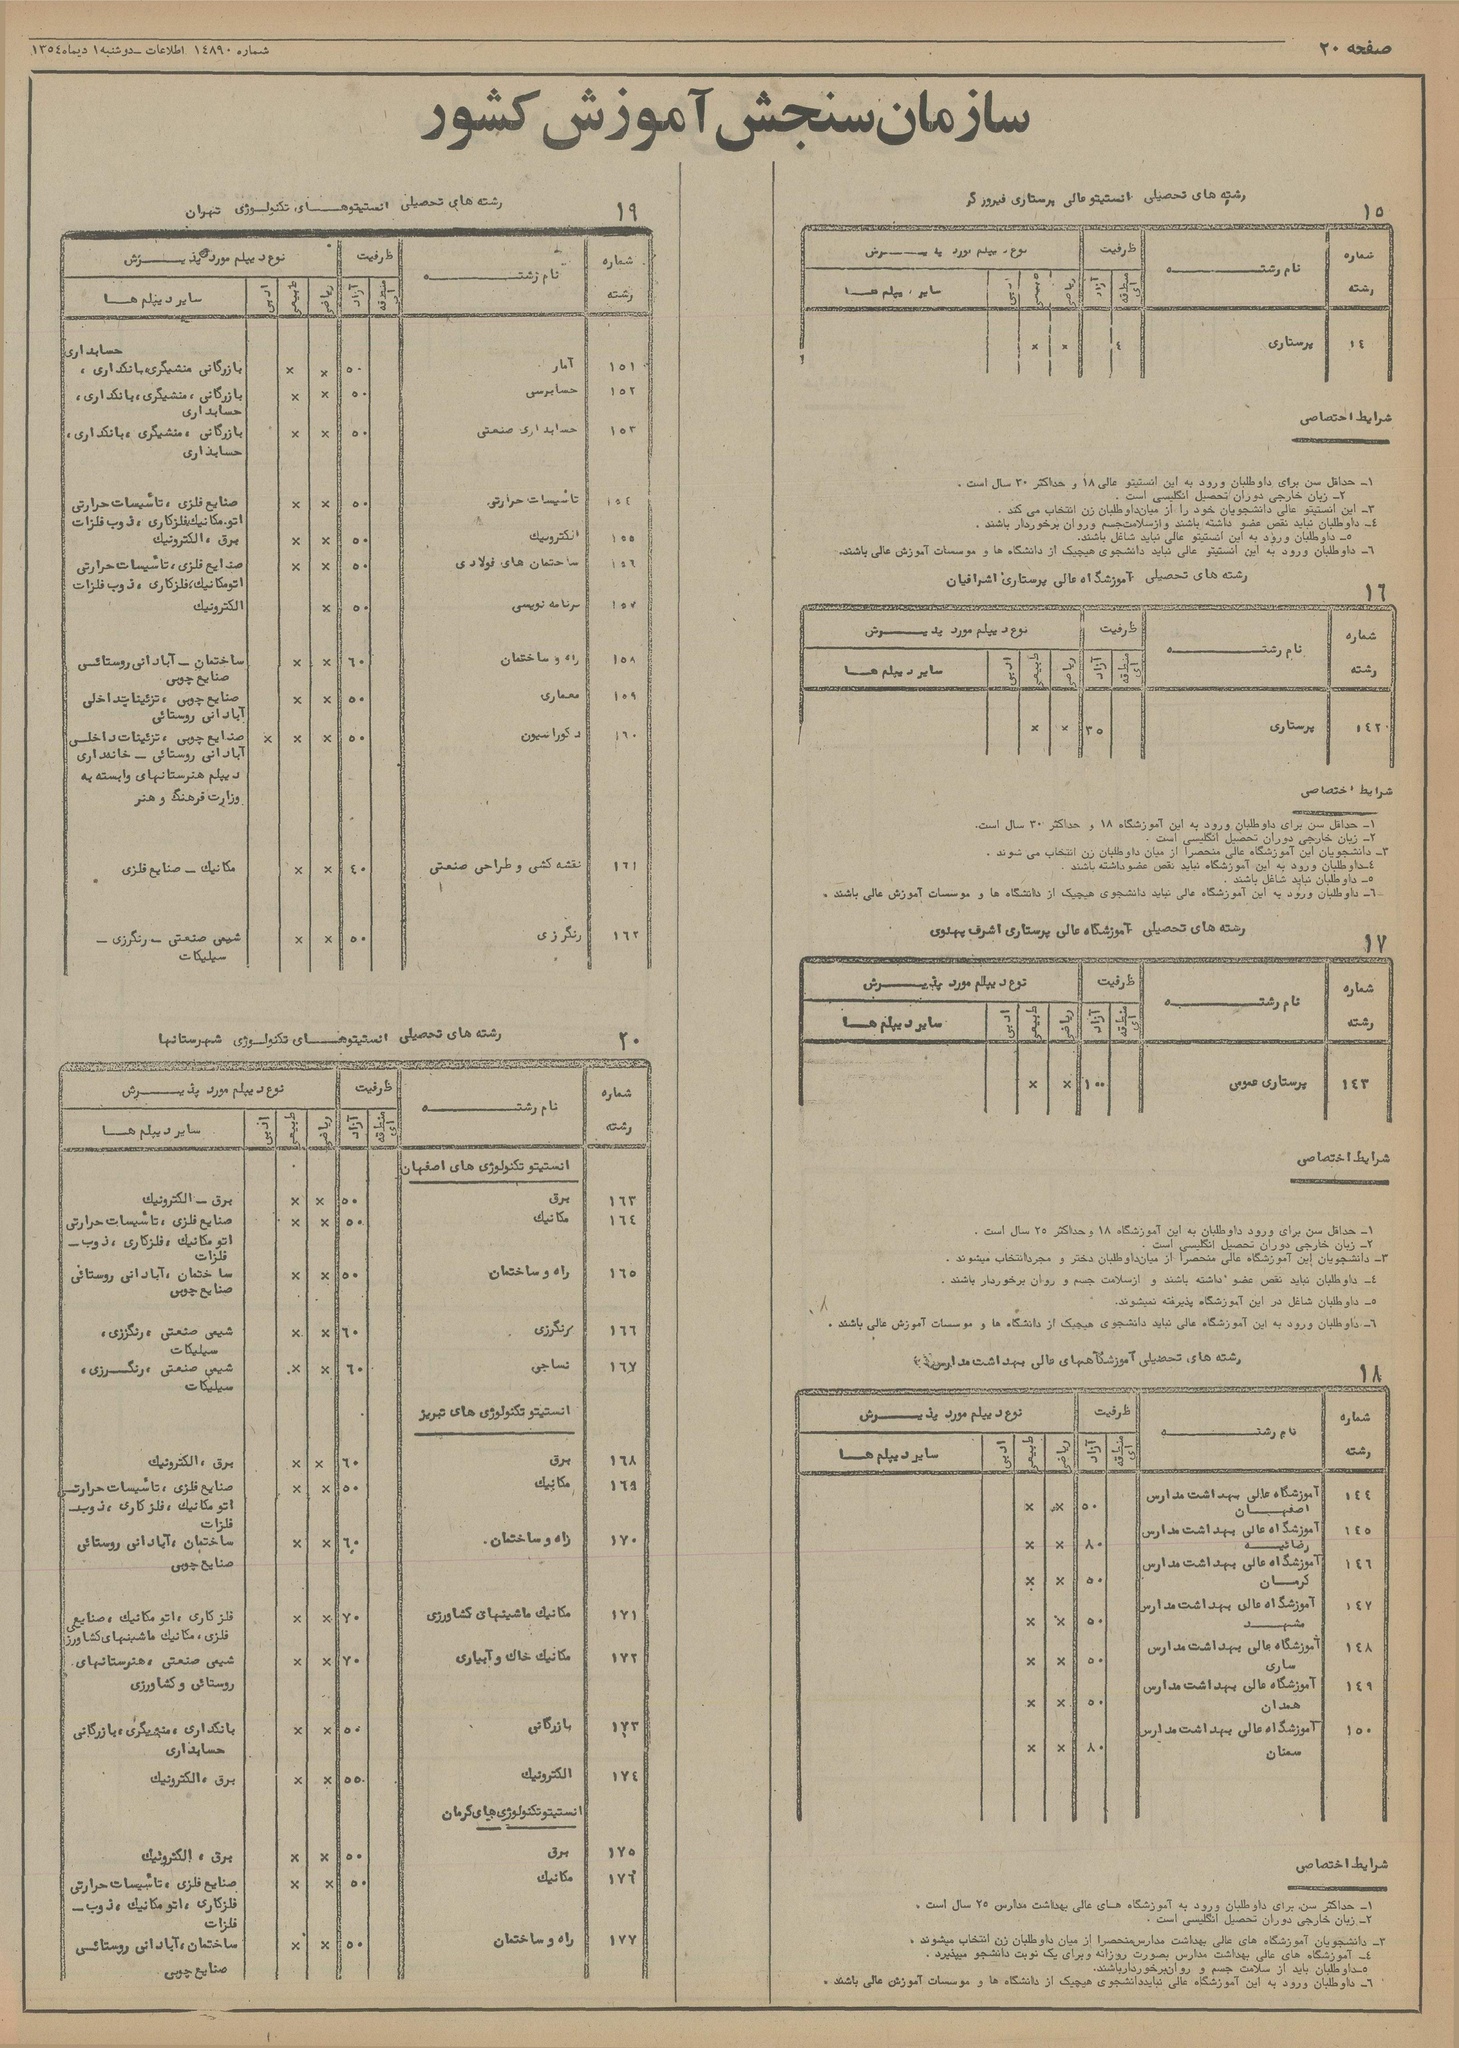 صفحه ۲۰
شماره ۱٤۸۹۰ اطلاعات ـ دوشنبه ۱ دیماه ۱۳٥٤
سازمان سنجش آموزش کشور
۱٥
رشته های تحصیلی انستیتو عالی پرستاری فیروزگر
شماره رشته نام رشته ظرفیت نوع دیپلم مورد پذیرش
منطقه ای آزاد ریاضی طبیعی ادبی سایر دیپلم ها
۱٤ پرستاری ٤ × ×
شرایط اختصاصی
۱ـ حداقل سن برای داوطلبان ورود به این انستیتو عالی ۱۸ و حداکثر ۳۰ سال است .
۲ـ زبان خارجی دوران تحصیل انگلیسی است .
۳ـ این انستیتو عالی دانشجویان خود را از میان داوطلبان زن انتخاب می کند .
٤ـ داوطلبان نباید نقص عضو داشته باشند و از سلامت جسم و روان برخوردار باشند .
٥ـ داوطلبان ورود به این انستیتو عالی نباید شاغل باشند.
٦ـ داوطلبان ورود به این انستیتو عالی نباید دانشجوی هیچیک از دانشگاه ها و موسسات آموزش عالی باشند.
۱٦
رشته های تحصیلی آموزشگاه عالی پرستاری اشرافیان
شماره رشته نام رشته ظرفیت نوع دیپلم مورد پذیرش
منطقه ای آزاد ریاضی طبیعی ادبی سایر دیپلم ها
۱٤۲ پرستاری ۳٥ × ×
شرایط اختصاصی
۱ـ حداقل سن برای داوطلبان ورود به این آموزشگاه ۱۸ و حداکثر ۳۰ سال است.
۲ـ زبان خارجی دوران تحصیل انگلیسی است .
۳ـ دانشجویان این آموزشگاه عالی منحصرا از میان داوطلبان زن انتخاب می شوند .
٤ـ داوطلبان ورود به این آموزشگاه نباید نقص عضو داشته باشند .
٥ـ داوطلبان نباید شاغل باشند .
٦ـ داوطلبان ورود به این آموزشگاه عالی نباید دانشجوی هیچیک از دانشگاه ها و موسسات آموزش عالی باشند .
۱۷
رشته های تحصیلی آموزشگاه عالی پرستاری اشرف پهلوی
شماره رشته نام رشته ظرفیت نوع دیپلم مورد پذیرش
منطقه ای آزاد ریاضی طبیعی ادبی سایر دیپلم ها
۱٤۳ پرستاری عمومی ۱۰۰ × ×
شرایط اختصاصی
۱ـ حداقل سن برای ورود داوطلبان به این آموزشگاه ۱۸ و حداکثر ۲٥ سال است .
۲ـ زبان خارجی دوران تحصیل انگلیسی است .
۳ـ دانشجویان این آموزشگاه عالی منحصرا از میان داوطلبان دختر و مجرد انتخاب میشوند .
٤ـ داوطلبان نباید نقص عضو داشته باشند و از سلامت جسم و روان برخوردار باشند .
٥ـ داوطلبان شاغل در این آموزشگاه پذیرفته نمیشوند.
٦ـ داوطلبان ورود به این آموزشگاه عالی نباید دانشجوی هیچیک از دانشگاه ها و موسسات آموزش عالی باشند .
۱۸
رشته های تحصیلی آموزشگاههای عالی بهداشت مدارس
شماره رشته نام رشته ظرفیت نوع دیپلم مورد پذیرش
منطقه ای آزاد ریاضی طبیعی ادبی سایر دیپلم ها
۱٤٤ آموزشگاه عالی بهداشت مدارس
اصفهان ٥۰ × ×
۱٤٥ آموزشگاه عالی بهداشت مدارس
رضائیه ۸۰ × ×
۱٤٦ آموزشگاه عالی بهداشت مدارس
کرمان ٥۰ × ×
۱٤۷ آموزشگاه عالی بهداشت مدارس
مشهد ٥۰ × ×
۱٤۸ آموزشگاه عالی بهداشت مدارس
ساری ٥۰ × ×
۱٤۹ آموزشگاه عالی بهداشت مدارس
همدان ٥۰ × ×
۱٥۰ آموزشگاه عالی بهداشت مدارس
سمنان ۸۰ × ×
شرایط اختصاصی
۱ـ حداکثر سن برای داوطلبان ورود به آموزشگاه های عالی بهداشت مدارس ۲٥ سال است .
۲ـ زبان خارجی دوران تحصیل انگلیسی است .
۳ـ دانشجویان آموزشگاه های عالی بهداشت مدارس منحصرا از میان داوطلبان زن انتخاب میشوند .
٤ـ آموزشگاه های عالی بهداشت مدارس بصورت روزانه و برای یک نوبت دانشجو میپذیرد .
٥ـ داوطلبان باید از سلامت جسم و روان برخوردار باشند.
٦ـ داوطلبان ورود به این آموزشگاه عالی نباید دانشجوی هیچیک از دانشگاه ها و موسسات آموزش عالی باشند .
۱۹
رشته های تحصیلی انستیتوهای تکنولوژی تهران
شماره رشته نام رشته ظرفیت نوع دیپلم مورد پذیرش
منطقه ای آزاد ریاضی طبیعی ادبی سایر دیپلم ها
حسابداری
۱٥۱ آمار ٥۰ × × بازرگانی منشیگری، بانکداری ،
۱٥۲ حسابرسی ٥۰ × × بازرگانی ، منشیگری، بانکداری ،
حسابداری
۱٥۳ حسابداری صنعتی ٥۰ × × بازرگانی ، منشیگری ، بانکداری،
حسابداری
۱٥٤ تاسیسات حرارتی ٥۰ × × صنایع فلزی ، تاسیسات حرارتی
اتو مکانیک، فلزکاری ، ذوب فلزات
۱٥٥ الکترونیک ٥۰ × × برق ، الکترونیک
۱٥٦ ساختمان های فولادی ٥۰ × × صنایع فلزی ، تاسیسات حرارتی
اتومکانیک، فلزکاری ، ذوب فلزات
۱٥۷ برنامه نویسی ٥۰ × الکترونیک
۱٥۸ راه و ساختمان ٦۰ × × ساختمان ـ آبادانی روستائی
صنایع چوبی
۱٥۹ معماری ٥۰ × × صنایع چوبی ، تزئینات داخلی
آبادانی روستائی
۱٦۰ دکوراسیون ٥۰ × × × صنایع چوبی ، تزئینات داخلی
آبادانی روستائی ـ خانه‌داری
دیپلم هنرستانهای وابسته به
وزارت فرهنگ و هنر
۱٦۱ نقشه کشی و طراحی صنعتی ٤۰ × × مکانیک ـ صنایع فلزی
۱٦۲ رنگرزی ٥۰ × × شیمی صنعتی ـ رنگرزی ـ
سیلیکات
۲۰
رشته های تحصیلی انستیتوهای تکنولوژی شهرستانها
شماره رشته نام رشته ظرفیت نوع دیپلم مورد پذیرش
منطقه ای آزاد ریاضی طبیعی ادبی سایر دیپلم ها
انستیتو تکنولوژی های اصفهان
۱٦۳ برق ٥۰ × × برق ـ الکترونیک
۱٦٤ مکانیک ٥۰ × × صنایع فلزی ، تاسیسات حرارتی
اتو مکانیک ، فلزکاری ، ذوب ـ
فلزات
۱٦٥ راه و ساختمان ٥۰ × × ساختمان ، آبادانی روستائی
صنایع چوبی
۱٦٦ رنگرزی ٦۰ × × شیمی صنعتی ، رنگرزی ،
سیلیکات
۱٦۷ نساجی ٦۰ × × شیمی صنعتی ، رنگرزی ،
سیلیکات
انستیتو تکنولوژی های تبریز
۱٦۸ برق ٦۰ × × برق ، الکترونیک
۱٦۹ مکانیک ٥۰ × × صنایع فلزی ، تاسیسات حرارتی
اتو مکانیک ، فلزکاری ، ذوب ـ
فلزات
۱۷۰ راه و ساختمان ٦۰ × × ساختمان ، آبادانی روستائی
صنایع چوبی
۱۷۱ مکانیک ماشینهای کشاورزی ۷۰ × × فلزکاری ، اتو مکانیک ، صنایع
فلزی ، مکانیک ماشینهای کشاورز
۱۷۲ مکانیک خاک و آبیاری ۷۰ × × شیمی صنعتی ، هنرستانهای
روستائی و کشاورزی
۱۷۳ بازرگانی ٥۰ × × بانکداری ، منشیگری، بازرگانی
حسابداری
۱۷٤ الکترونیک ٥٥ × × برق ، الکترونیک
انستیتو تکنولوژی های کرمان
۱۷٥ برق ٥۰ × × برق ، الکترونیک
۱۷٦ مکانیک ٥۰ × × صنایع فلزی ، تاسیسات حرارتی
فلزکاری ، اتو مکانیک ، ذوب ـ
فلزات
۱۷۷ راه و ساختمان ٥۰ × × ساختمان ، آبادانی روستائی
صنایع چوبی